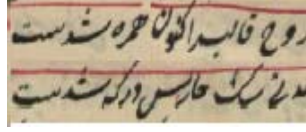 روح قالب را کنون همره شدست
مدتی سگ حارس درگه شدست